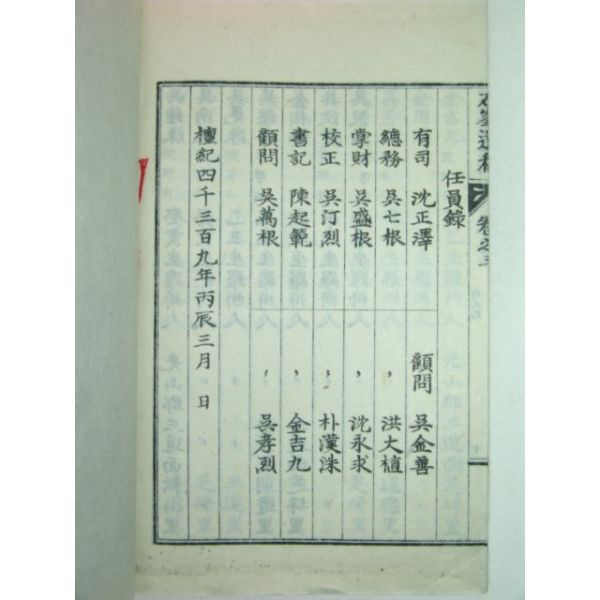 卷之三
任員錄
有司 沈正澤 顧問 吳金善
總務 吳七根 〃 洪大植
掌財 吳盛根 〃 沈永求
校正 吳汀烈 〃 朴漢洙
書記 陳起範 〃 金吉九
顧問 吳萬根 〃 吳孝烈
檀紀四千三百九年丙辰三月 日